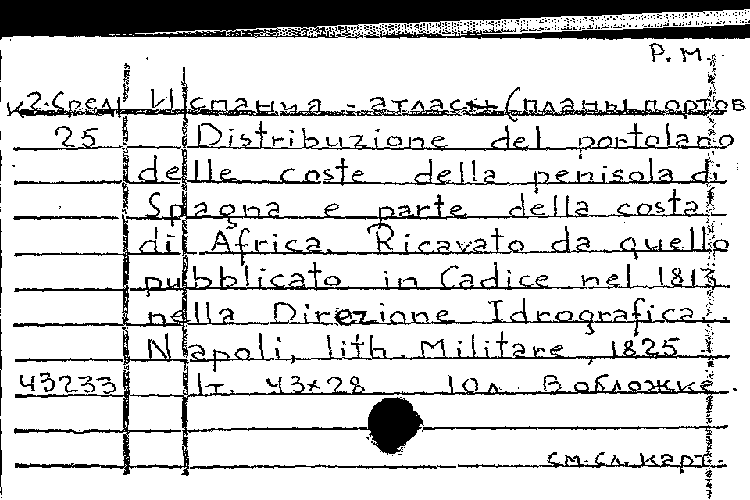 Р. М.
к2. Сред Испания - атласы (планы портов
25 Distribuzione del portolano
delle coste della penisola di
Spagna e parte della costa
di Africa. Ricavato da quello
pubblicato in Cadice nel 1813
nella Direzione Idrografica.
Napoli, lith. Militare, 1825
43233 1т. 43×28 10л. В обложке.
см. сл. карт.